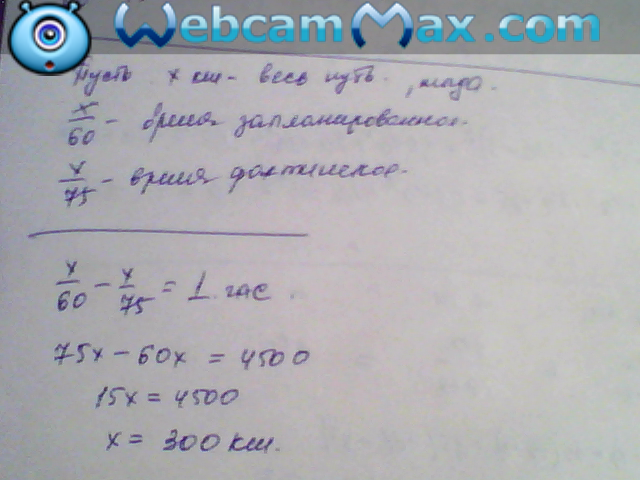 WebcamMax.com
Пусть x км - весь путь, тогда.
x/60 - время запланированное.
x/75 - время фактическое.
x/60 - x/75 = 1 час.
75x - 60x = 4500
15x = 4500
x = 300 км.